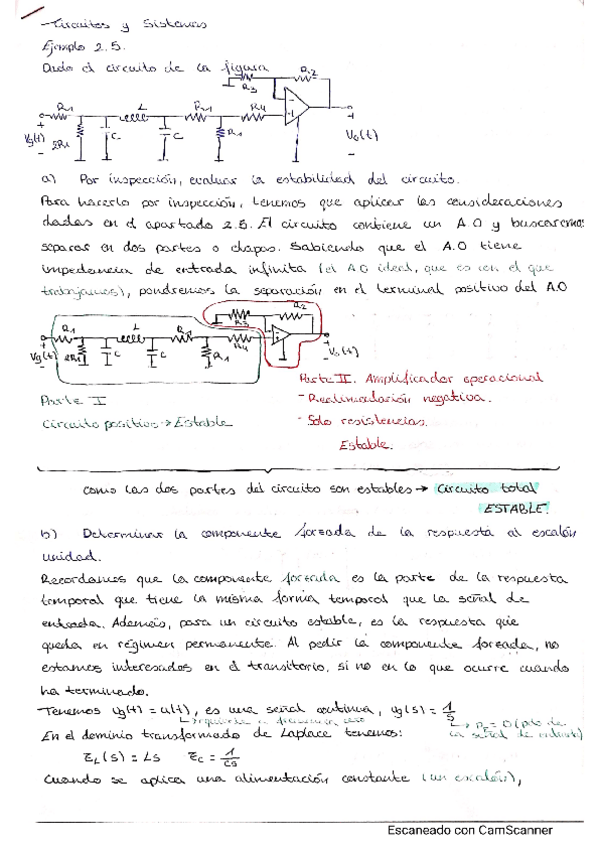 - Circuitos y Sistemas
Ejemplo 2.5.
Dado el circuito de la figura
R3 R2
R1 L R1 R4
Vg(t) 2R1 C C R1 Vo(t)
a) Por inspección, evaluar la estabilidad del circuito.
Para hacerlo por inspección, tenemos que aplicar las consideraciones
dadas en el apartado 2.5. El circuito contiene un A.O y buscaremos
separar en dos partes o etapas. Sabiendo que el A.O tiene
impedancia de entrada infinita (el A.O ideal, que es con el que
trabajamos), pondremos la separación en el terminal positivo del A.O
R3 R2
R1 L R1 R4
Vg(t) 2R1 C C R1 Vo(t)
Parte II. Amplificador operacional
Parte I
- Realimentación negativa.
Circuito positivo → Estable
- Solo resistencias.
Estable.
como las dos partes del circuito son estables → Circuito total
ESTABLE.
b) Determinar la componente forzada de la respuesta al escalón
unidad.
Recordamos que la componente forzada es la parte de la respuesta
temporal que tiene la misma forma temporal que la señal de
entrada. Además, para un circuito estable, es la respuesta que
queda en régimen permanente. Al pedir la componente forzada, no
estamos interesados en el transitorio, si no en lo que ocurre cuando
ha terminado.
Tenemos vg(t) = u(t), es una señal continua, vg(s) = 1/s
En el dominio transformado de Laplace tenemos: la señal de entrada)
ZL(s) = Ls Zc = 1/Cs
Cuando se aplica una alimentación constante (un escalón),
Escaneado con CamScanner